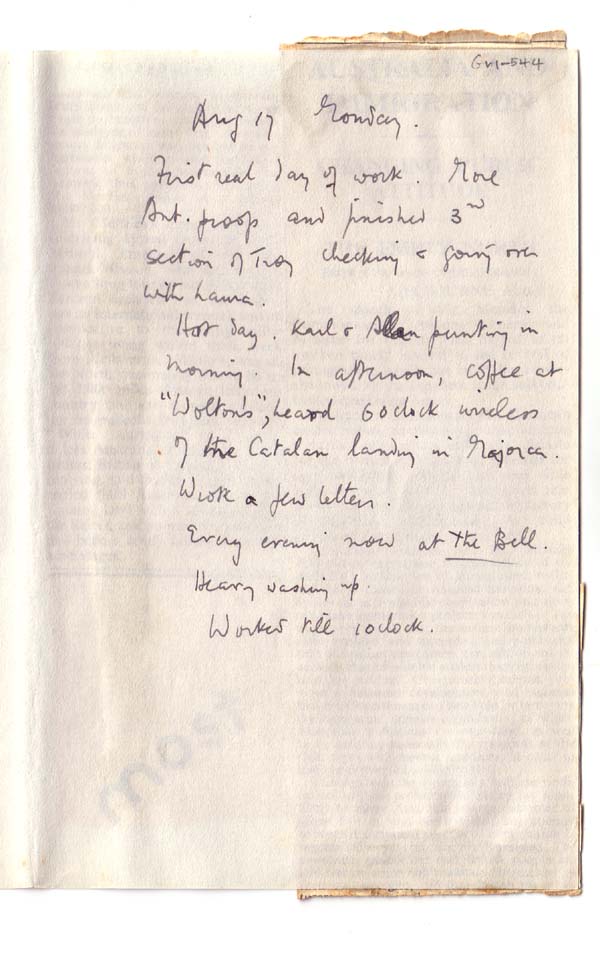 GVI-544
Aug 17 Monday.
First real day of work. More
Ant. proofs and finished 3rd
section of Troy checking & going over
with Laura.
Hot day. Karl & Alan punting in
morning. In afternoon, coffee at
"Wolton's", heard 6 oclock wireless
of the Catalan landing in Majorca.
Wrote a few letters.
Every evening now at The Bell.
Heavy washing up.
Worked till 1 oclock.